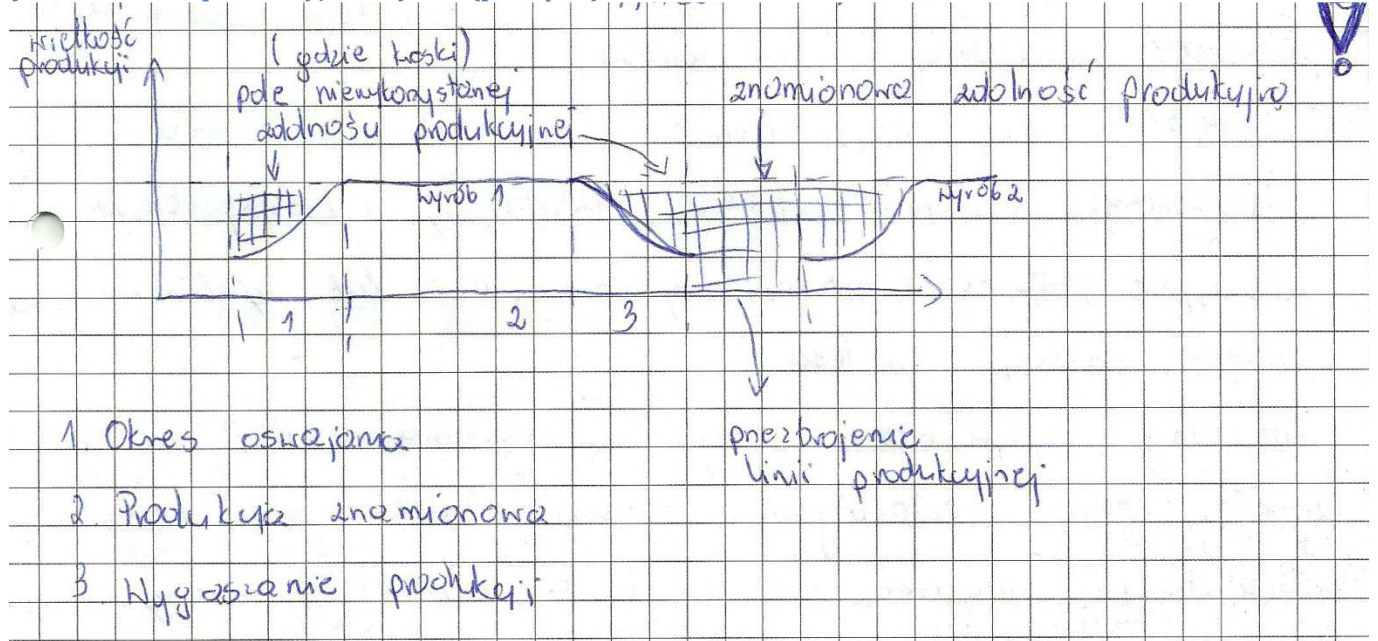 wielkość
produkcji
(gdzie koski)
pole niewykorzystanej
zdolności produkcyjnej
znamionowa zdolność produkcyjna
wyrób 1
wyrób 2
1
2
3
przezbrojenie
linii produkcyjnej
1. Okres oswajania
2. Produkcja znamionowa
3 Wygaszanie produkcji